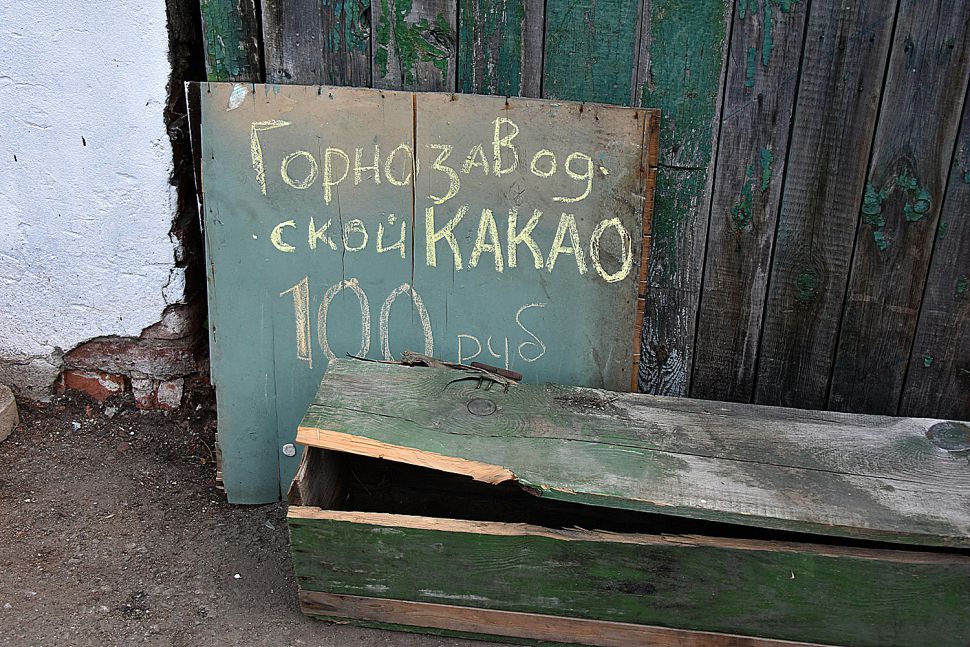 Горнозавод-
ской КАКАО
100 руб